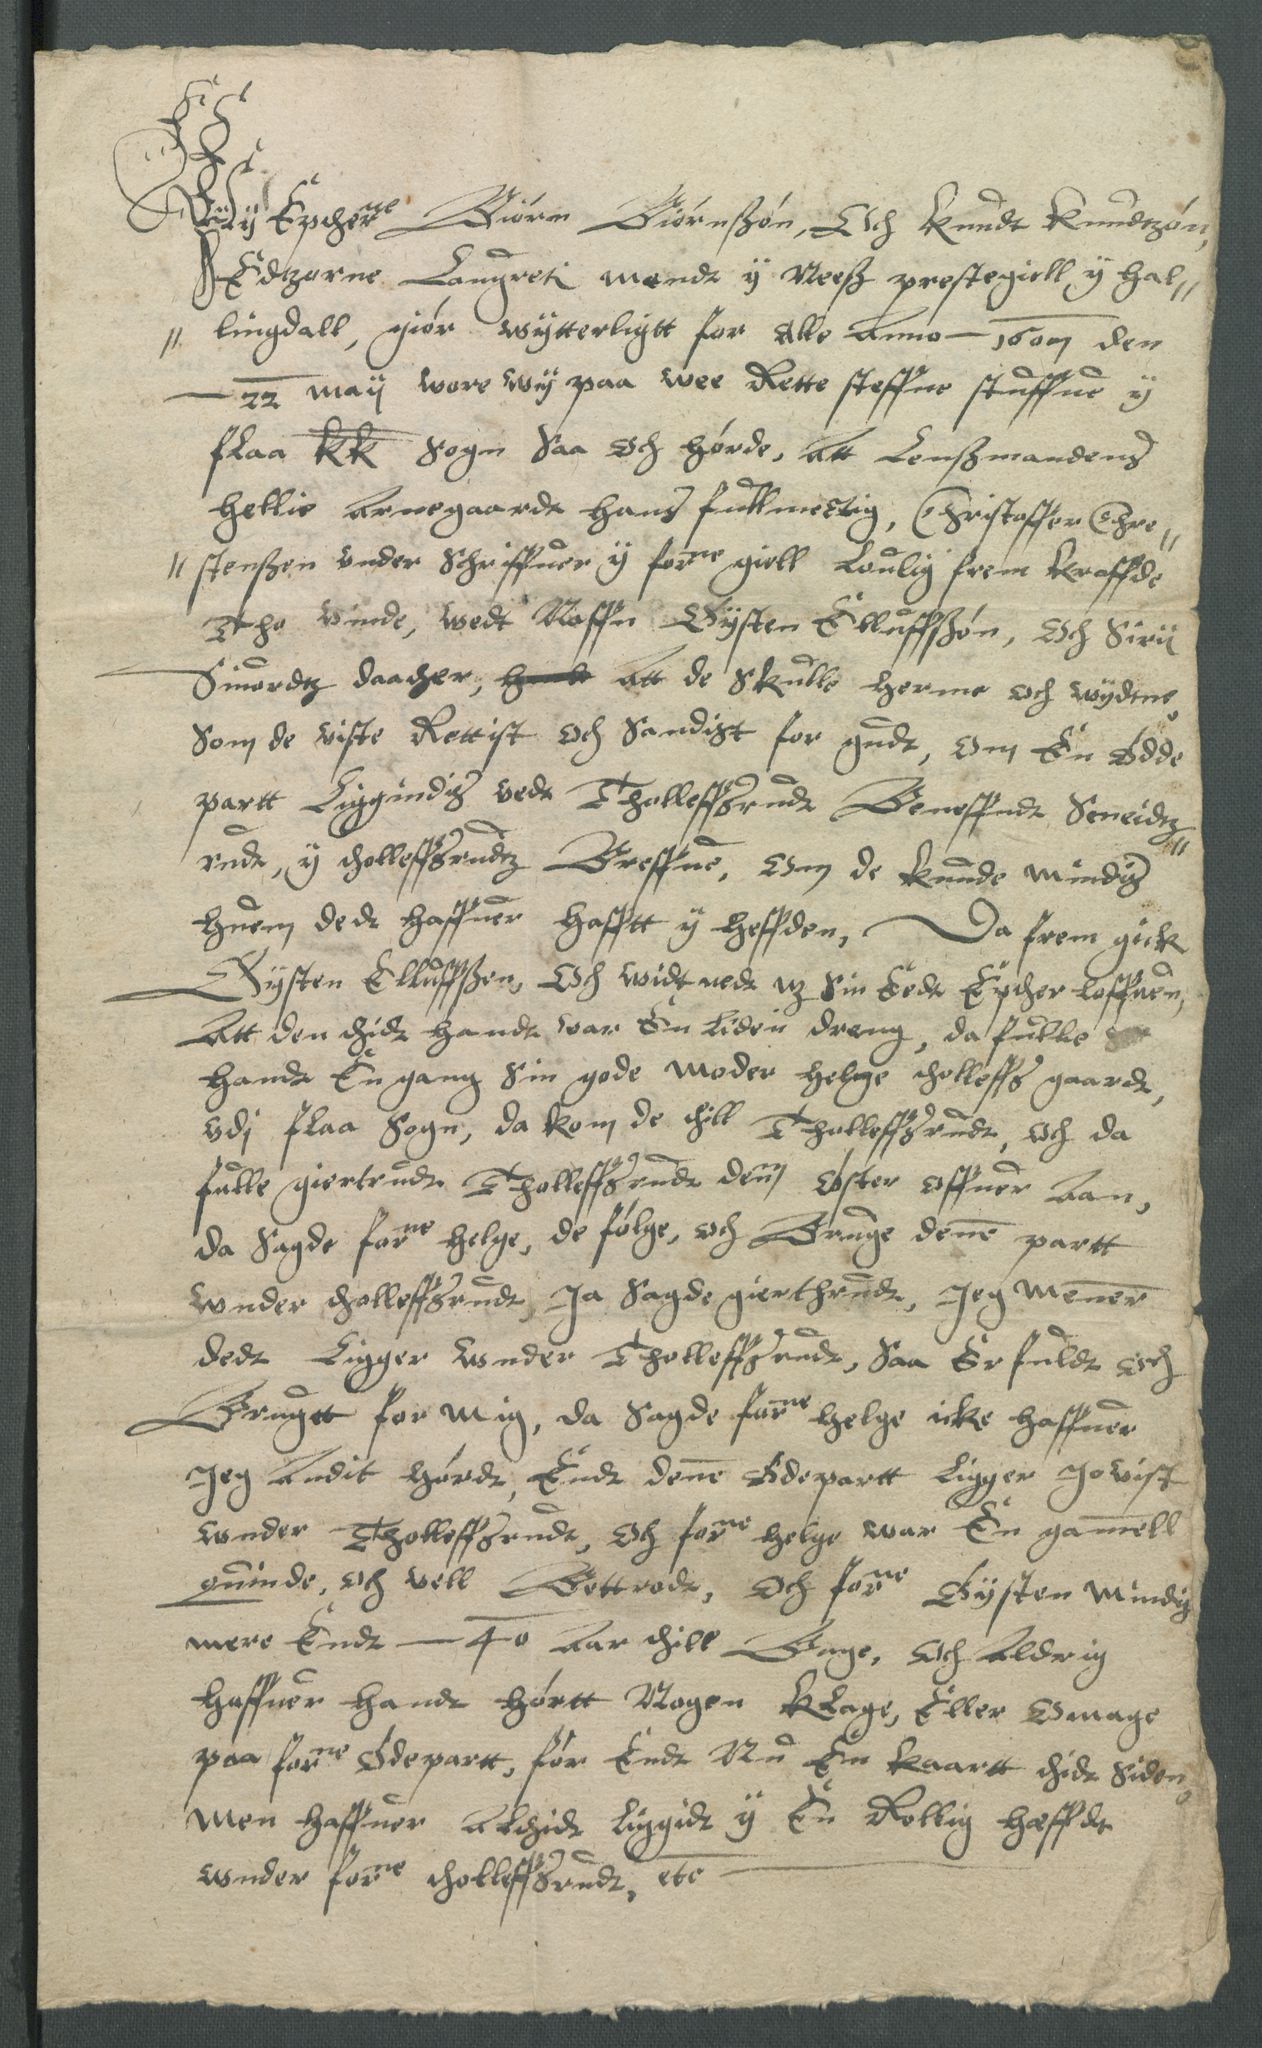 Wÿ Epcherne Biörn Biörnßön, Och Knudt Knudtzön,
Edtzorne Laugretj mendt ÿ Neeß prestegiell ÿ Hal„
„ lingdall, giör wÿtterligtt for alle Anno — 160 den
— 22 maÿ wore wÿ paa wee Rette steffne stuffue ÿ
flaa KK Sogn Saa och hörde, att Lenßmandens
Hellie Arnegaardt hans fullmectig, Christoffer Chre„
„ stenßen under Schriffuer ÿ forne giell Loulig frem Kraffde
Tho Vinde, wedt Naffn Øÿsten Elluffßön, och Sirÿ
Siuordtz daather, att de Skulle herme och wÿdtne
Som de viste Rettist och Sandist for gudt, om En Ödde
partt Liggindis vedt Tholleffsrudt Beneffndt Sneidtz„
rudt, ÿ tholleffsrudtz Greffue, om de kunde mindis
huem dedt haffuer hafftt ÿ heffden, Da frem gick
Øÿsten Elluffßen, och widtnedt Sin Eedt Epther Loffuen,
att den thidt handt war En liden dreng, da fulle
handt En gang Sin gode moder Helge tholleffs gaardt,
udj flaa Sogn, da kom de thill Tholleffsrudt, och da
fulle giertrudt Tholleffsrudt dem öster offuer Aan,
da Sagde forne Helge, de fölge, och Bruge denne partt
under tholleffsrudt, Ja Sagde gierthrudt, Jeg menner
dedt Ligger under Tholleffsrudt, Saa Er fuldt och
Brugtt for mig, da Sagde forne Helge icke haffuer
Jeg Andit hördt, Endt denne Ödepartt Ligger Jo vist
under Tholleffsrudt, och forne Helge war En gammell
quinde, och vell Bettrodt, och forne Øÿsten mindis
mere Endt — 40 Aar thill Bage, och Aldrig
haffuer handt hörtt Nogen Klage, Eller Omage
paa forne Ödepartt, för Endt Nu En kaartt thidt Siden,
men haffuer althidt Liggidt ÿ En Rollig heffdt
under forne tholleffsrudt, etc